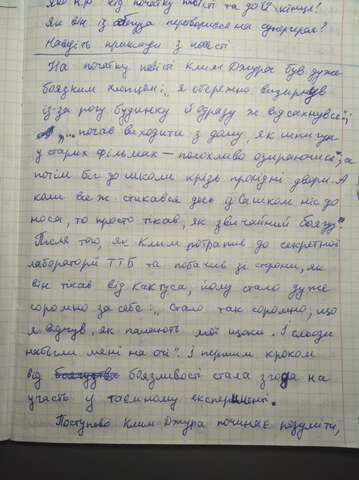 від початку повісті та до її кінця?
Як він із боягуза перетворився на супергероя?
Наведіть приклади з повісті
На початку повісті Клим Джура був дуже
боязким хлопцем: „я обережно визирнув
із-за рогу будинку й одразу ж відсахнувся“;
„... почав виходити з дому, як шпигун
у старих фільмах – полохливо озираючись“, а
потім біг до школи крізь прохідні двори. А
коли все ж стикався десь із Вашком ніс до
носа, то просто тікав, як звичайний боягуз“.
Після того, як Клим потрапив до секретної
лабораторії ТТБ та побачив зі сторони, як
він тікав від Кактуса, йому стало дуже
соромно за себе: „Стало так соромно, що
я відчув, як палають мої щоки. І сльози
набігли мені на очі“. І першим кроком
від боязливості стала згода на
участь у таємному експерименті.
Поступово Клим Джура починає розуміти,